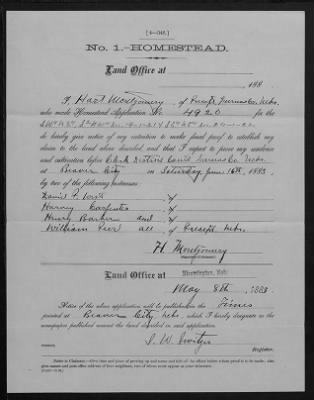 [4—348.]
No. 1.—HOMESTEAD.
Land Office at
188 .
I, Hart Montgomery, of Precept Furnas Co. Nebr.
who made Homestead Application No. 4920 for the
do hereby give notice of my intention to make final proof to establish
my claim to the land above described, and that I expect to prove my residence
and cultivation before Clerk District Court Furnas Co. Nebr.
at Beaver City on Saturday June 16th 1883,
by two of the following witnesses:
Daniel F.
Harvey Carpenter
Henry Barker and
William all of Precept Nebr.
H. Montgomery
Land Office at Bloomington, Neb.
May 8th, 1883
Notice of the above application will be published in the Times
printed at Beaver City, Nebr., which I hereby designate as the
newspaper published nearest the land described in said application.
S. W. Switzer
Register.